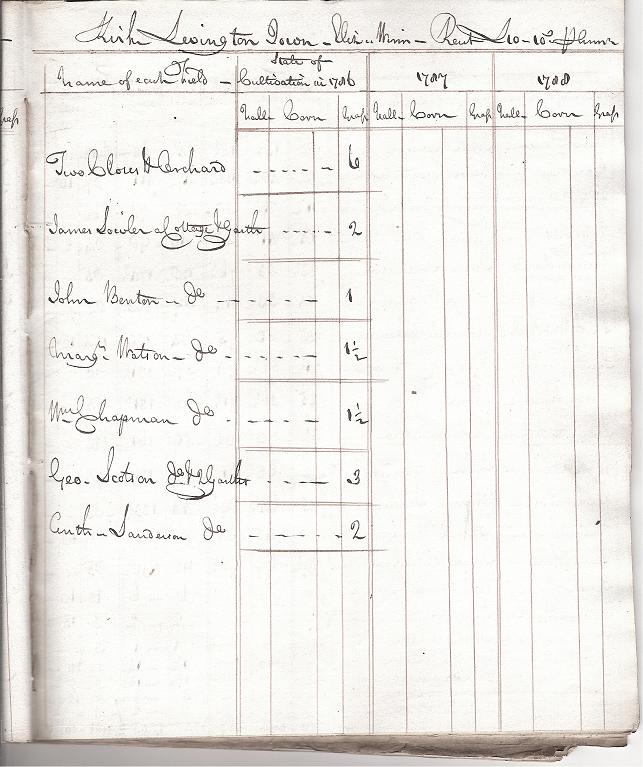 Kirk Levington Town - - Rent £10 - 10s P Annm
State of
Name of each Field - Cultivation in 1786 1787 1788
Fall Corn Grass Fall Corn Grass Fall Corn Grass
Grass
Two Closes & Orchard - - - - - 6
James Fowler a Cottage & Garth - - - - - 2
John Benton - do - - - - - - 1
Margt Watson - do - - - - - - 1½
Wm Chapman do - - - - - 1½
Geo - Scotson do & 2 Garths - - - - 3
Anth - Sanderson do - - - - - 2